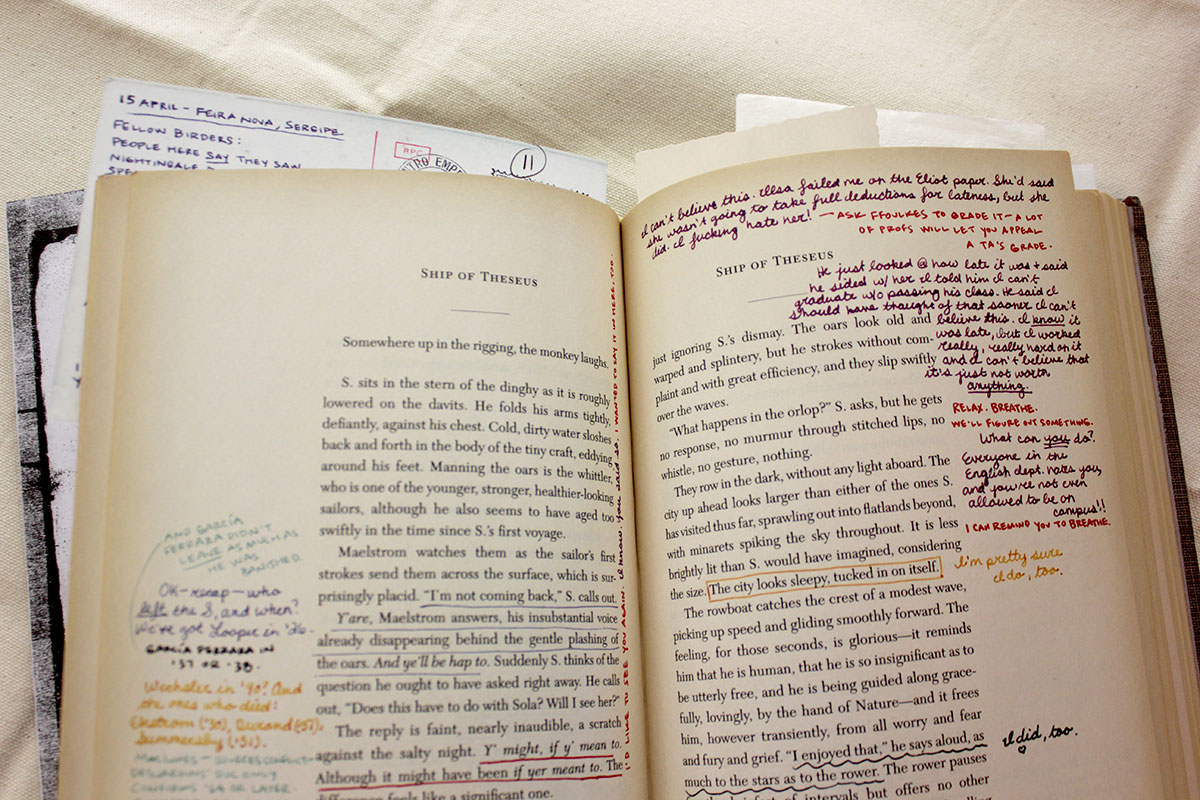 15 APRIL - FEIRA NOVA, SERGIPE
FELLOW BIRDERS:
PEOPLE HERE SAY THEY SAW
NIGHTINGALE
RPC
11
SHIP OF THESEUS
Somewhere up in the rigging, the monkey laughs.
S. sits in the stern of the dinghy as it is roughly
lowered on the davits. He folds his arms tightly,
defiantly, against his chest. Cold, dirty water sloshes
back and forth in the body of the tiny craft, eddying
around his feet. Manning the oars is the whittler,
who is one of the younger, stronger, healthier-looking
sailors, although he also seems to have aged too
swiftly in the time since S.'s first voyage.
Maelstrom watches them as the sailor's first
strokes send them across the surface, which is sur-
prisingly placid. "I'm not coming back," S. calls out.
Y'are, Maelstrom answers, his insubstantial voice
already disappearing behind the gentle plashing of
the oars. And ye'll be hap to. Suddenly S. thinks of the
question he ought to have asked right away. He calls
out, "Does this have to do with Sola? Will I see her?"
The reply is faint, nearly inaudible, a scratch
against the salty night. Y' might, if y' mean to.
Although it might have been if yer meant to. The
difference feels like a significant one.
AND GARCÍA
FERRARA DIDN'T
LEAVE AS MUCH AS
HE WAS
BANISHED.
OK-recap-who
left the S, and when?
We've got Looper in '26.
GARCÍA FERRARA IN
'37 OR '38.
Wechsler in '40? And
the ones who died:
Ekstrom ('30), Durand ('37),
Summersby ('51).
I'D LIKE TO SEE YOU AGAIN. I know. You said so. I WANTED TO SAY IT IN HERE, TOO.
I can't believe this. Ilsa failed me on the Eliot paper. She'd said
she wasn't going to take full deductions for lateness, but she
did. I fucking hate her! - ASK FFOULKES TO GRADE IT - A LOT
OF PROFS WILL LET YOU APPEAL
A TA'S GRADE.
SHIP OF THESEUS
He just looked @ how late it was + said
he sided w/ her. I told him I can't
graduate w/o passing his class. He said I
should have thought of that sooner. I can't
believe this. I know it
was late, but I worked
really, really hard on it
and I can't believe that
it's just not worth
anything.
RELAX. BREATHE.
WE'LL FIGURE OUT SOMETHING.
What can you do?
Everyone in the
English dept. hates you,
and you're not even
allowed to be on
campus!!
I CAN REMIND YOU TO BREATHE.
just ignoring S.'s dismay. The oars look old and
warped and splintery, but he strokes without com-
plaint and with great efficiency, and they slip swiftly
over the waves.
"What happens in the orlop?" S. asks, but he gets
no response, no murmur through stitched lips, no
whistle, no gesture, nothing.
They row in the dark, without any light aboard. The
city up ahead looks larger than either of the ones S.
has visited thus far, sprawling out into flatlands beyond,
with minarets spiking the sky throughout. It is less
brightly lit than S. would have imagined, considering
the size. The city looks sleepy, tucked in on itself.
I'm pretty sure
I do, too.
The rowboat catches the crest of a modest wave,
picking up speed and gliding smoothly forward. The
feeling, for those seconds, is glorious—it reminds
him that he is human, that he is so insignificant as to
be utterly free, and he is being guided along grace-
fully, lovingly, by the hand of Nature—and it frees
him, however transiently, from all worry and fear
and fury and grief. "I enjoyed that," he says aloud, as
much to the stars as to the rower. The rower pauses
of intervals but offers no other
I did, too.